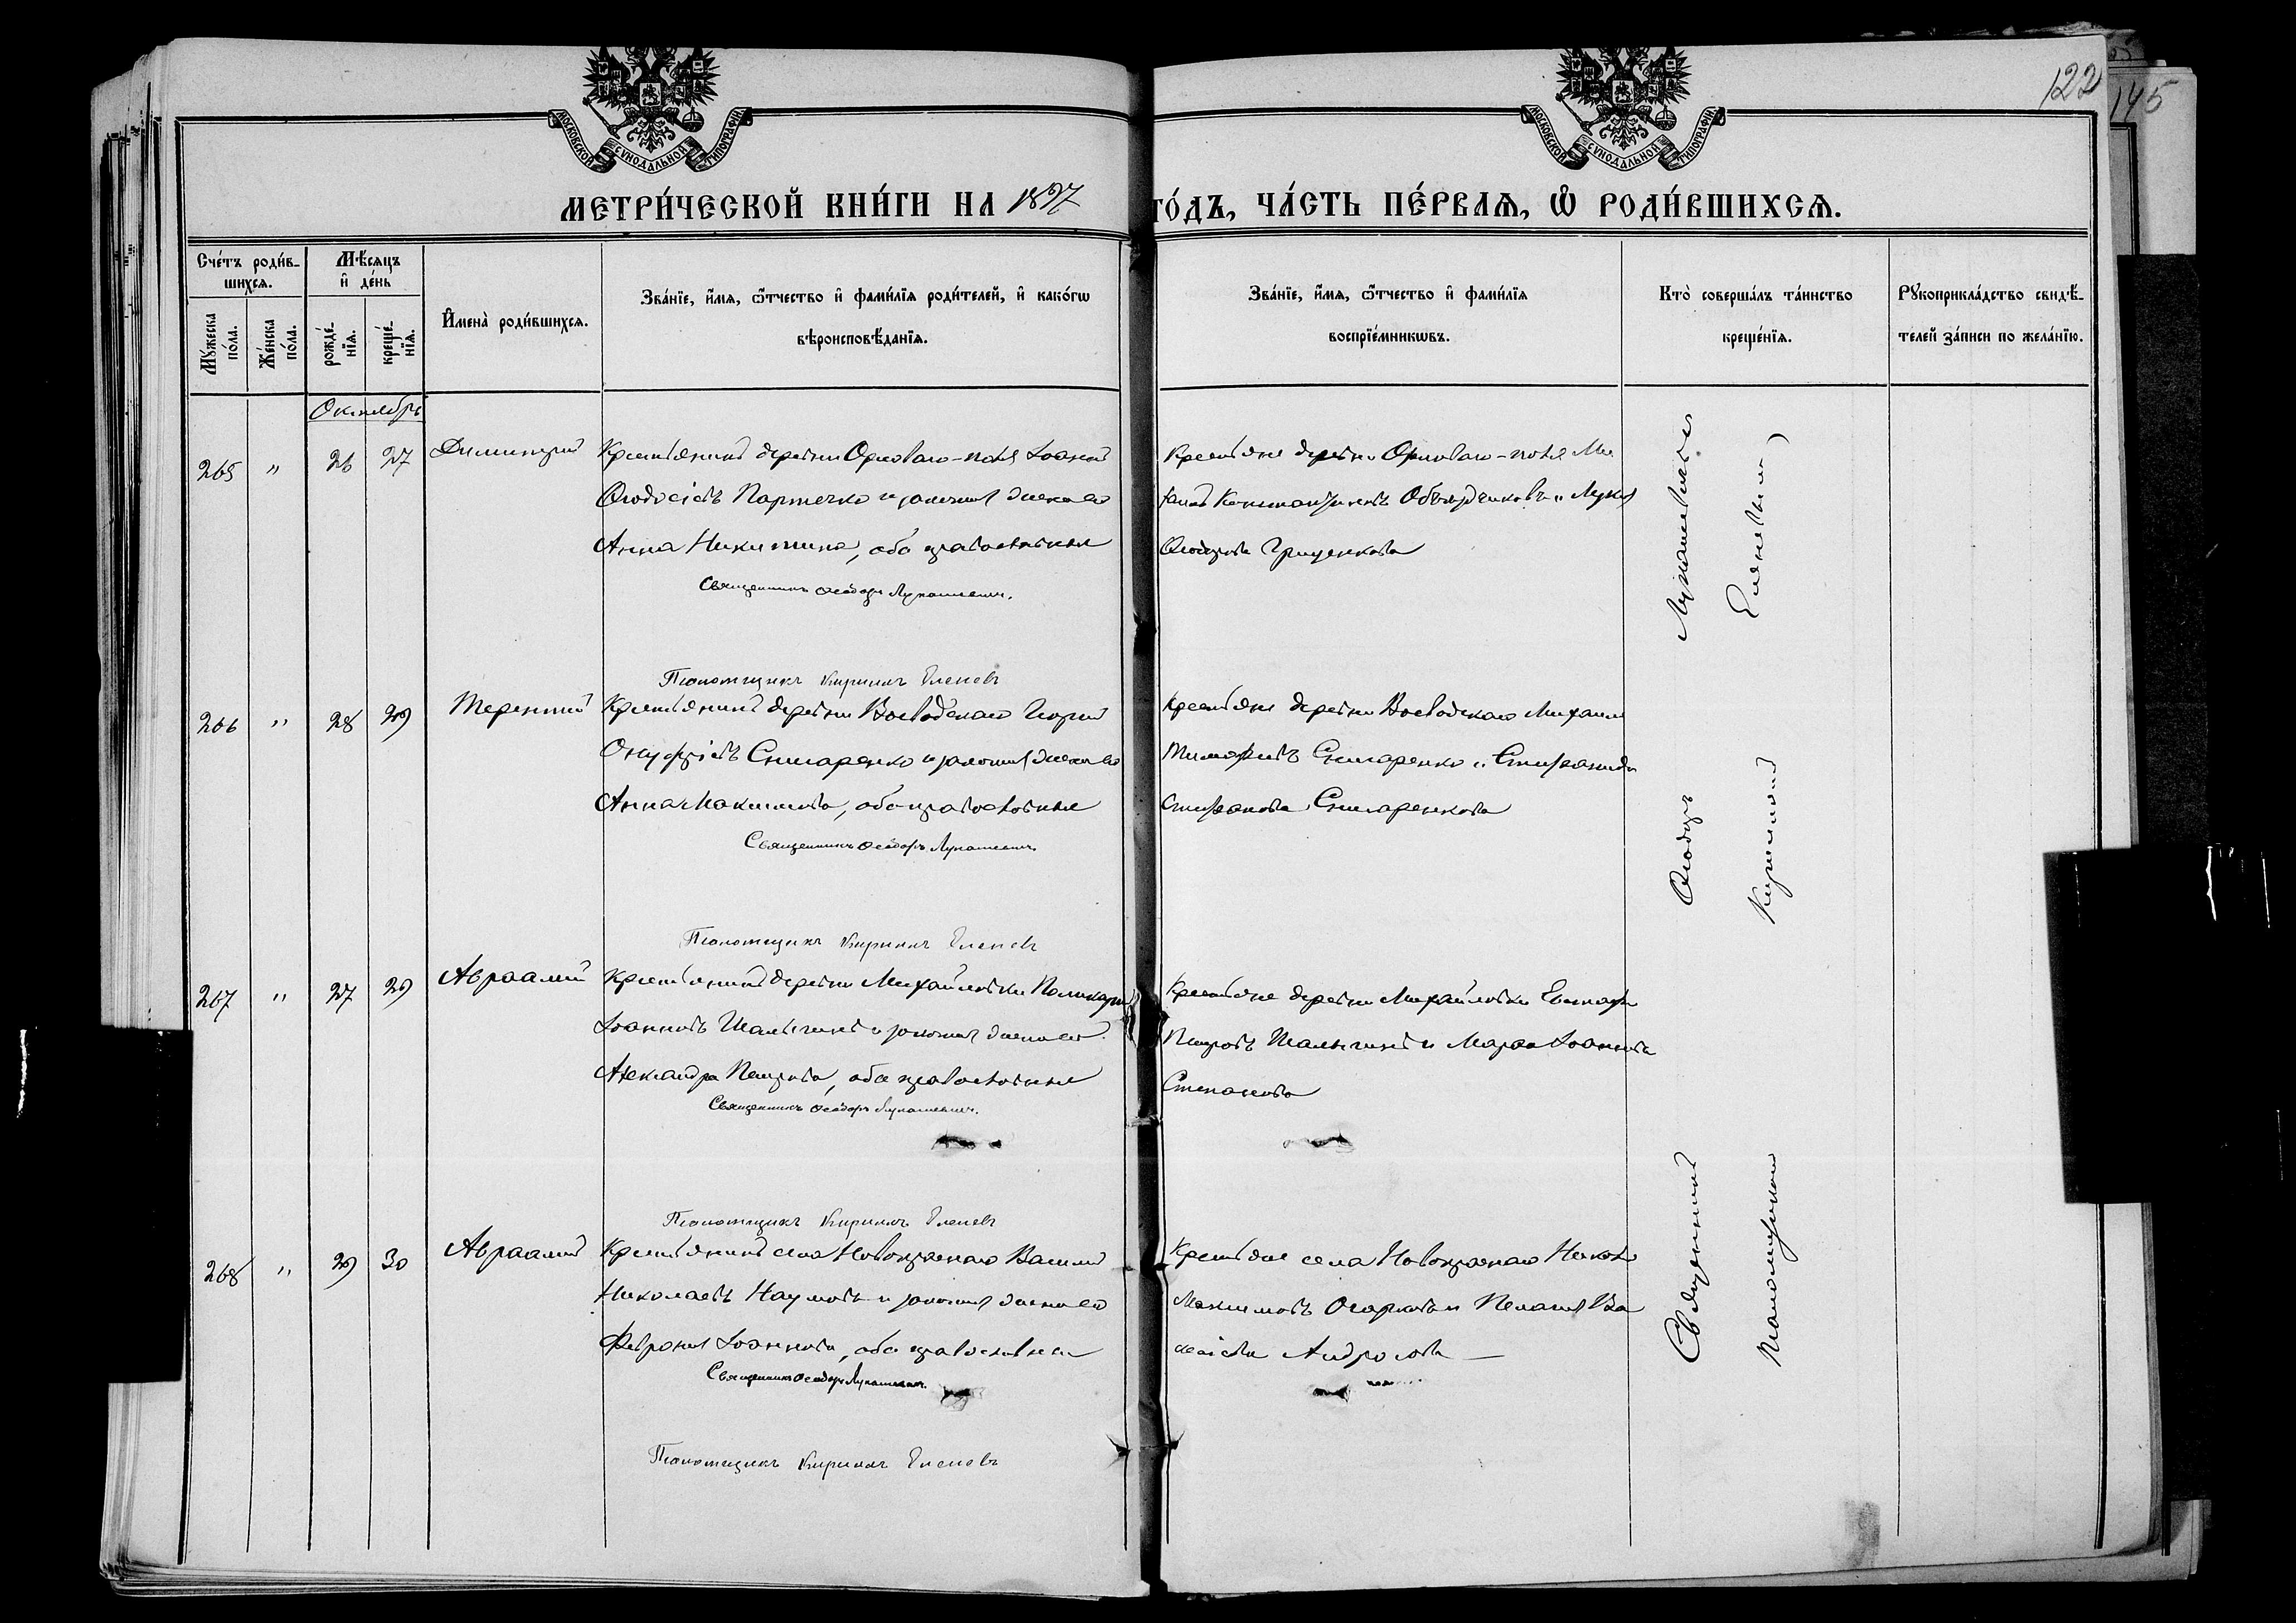 122
145
МОСКОВСКОЙ СѴНОДАЛЬНОЙ ТИПОГРАФІИ
МОСКОВСКОЙ СѴНОДАЛЬНОЙ ТИПОГРАФІИ
МЕТРИ́ЧЕСКОЙ КНИ́ГИ НА 1897 ГО́ДЪ, ЧА́СТЬ ПЕ́РВАЯ, Ѽ РОДИ́ВШИХСЯ.
Сче́тъ роди́в-
шихся.
Мꙋ́жеска по́ла.
Же́нска по́ла.
Мѣ́сяцъ
и҆ де́нь
рожде́-нїя.
креще́-нїя.
И҆мена̀ роди́вшихся.
Зва́нїе, и҆́мя, ѻ҆́тчество и҆ фами́лїя роди́телей, и҆ како́гѡ
вѣроисповѣ́данїя.
Зва́нїе, и҆́мя, ѻ҆́тчество и҆ фами́лїя
воспрїе́мникѡвъ.
Кто̀ соверша́лъ та́инство
креще́нїя.
Рꙋкоприкла́дство свидѣ́-
телей за́писи по жела́нїю.
Октябрь
265 " 26 27 Димитрий
Крестьянинъ деревни Орлового-поля Іоаннъ
Ѳеодосіевъ Партечко и законная жена его
Анна Никитина, оба православные
Священникъ Ѳеодоръ Лукашевич.
Псаломщикъ Кириллъ Еленевъ
Крестьяне деревни Орлового-поля
Константиновъ и
Ѳеодорова Гриценкова
266 " 28 29 Терентий
Крестьянинъ деревни Воеводскаго Георгий
Онуфріевъ Снисаренко и законная жена его
Анна Максимова, оба православные
Священникъ Ѳеодоръ Лукашевич.
Псаломщикъ Кириллъ Еленевъ
Крестьяне деревни Воеводскаго Михаил
Тимофеевъ Снисаренко и Стефанида
Стефанова Снисаренкова
267 " 27 29 Авраамий
Крестьянинъ деревни Михайловки Поликарпъ
Іоанновъ Шалыгинъ и законная жена его
Александра Петрова, оба православные
Священникъ Ѳеодоръ Лукашевич.
Псаломщикъ Кириллъ Еленевъ
Крестьяне деревни Михайловки
Петровъ Шалыгинъ и Марфа Іоаннова
Степанова
268 " 29 30 Авраамий
Крестьянинъ села Новотроенаго Василий
Николаевъ Наумовъ и законная жена его
Феврония Іоаннова, оба православные
Священникъ Ѳеодоръ Лукашевич
Псаломщикъ Кириллъ Еленевъ
Крестьяне села
Максимовъ Огарковъ и Пелагия Ва
Андросова
Священникъ Ѳеодоръ Лукашевичъ
Псаломщикъ Кириллъ Еленевъ